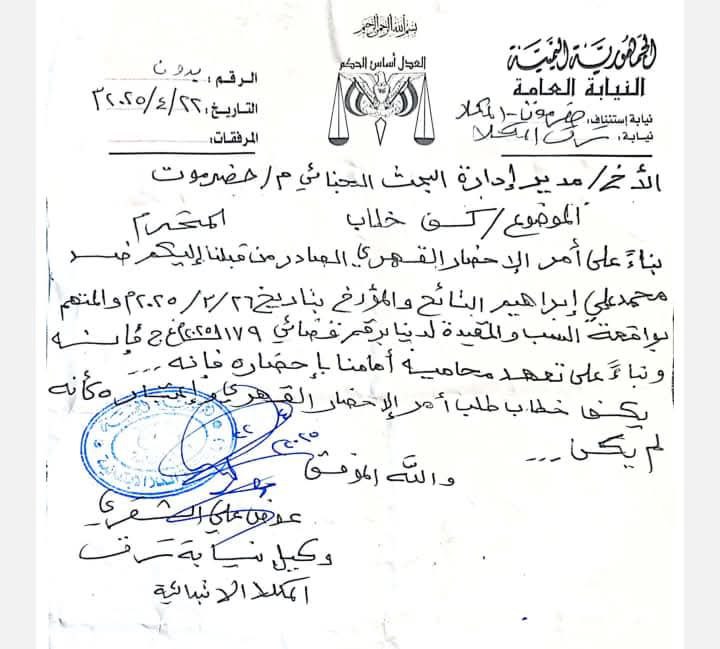 بسم الله الرحمن الرحيم
الجمهورية اليمنية
النيابة العامة
نيابة إستئناف: حضرموت - المكلا
نيابة: شرق المكلا
العدل أساس الحكم
الرقم: بدون
التاريخ: ٢٢/٤/٢٠٢٥م
المرفقات:
الأخ/ مدير إدارة البحث الجنائي م/حضرموت
المحترم
الموضوع/ كف خطاب
بناءً على أمر الإحضار القهري الصادر من قبلنا إليكم ضد
محمد علي إبراهيم النائح والمؤرخ بتاريخ ٢٦/٢/٢٠٢٥م والمتهم
بواقعة السب والمقيدة لدينا برقم قضائي ١٧٩ لـ٢٠٢٥م غ ج فإنه
وبناءً على تعهد محاميه أمامنا بإحضاره فإنه ...
يكف خطاب طلب أمر الإحضار القهري وإعتباره كأنه
لم يكن ...
والله الموفق
٢٢
٤
٢٠٢٥
عوض علي الشعري
وكيل نيابة شرق
المكلا الابتدائية